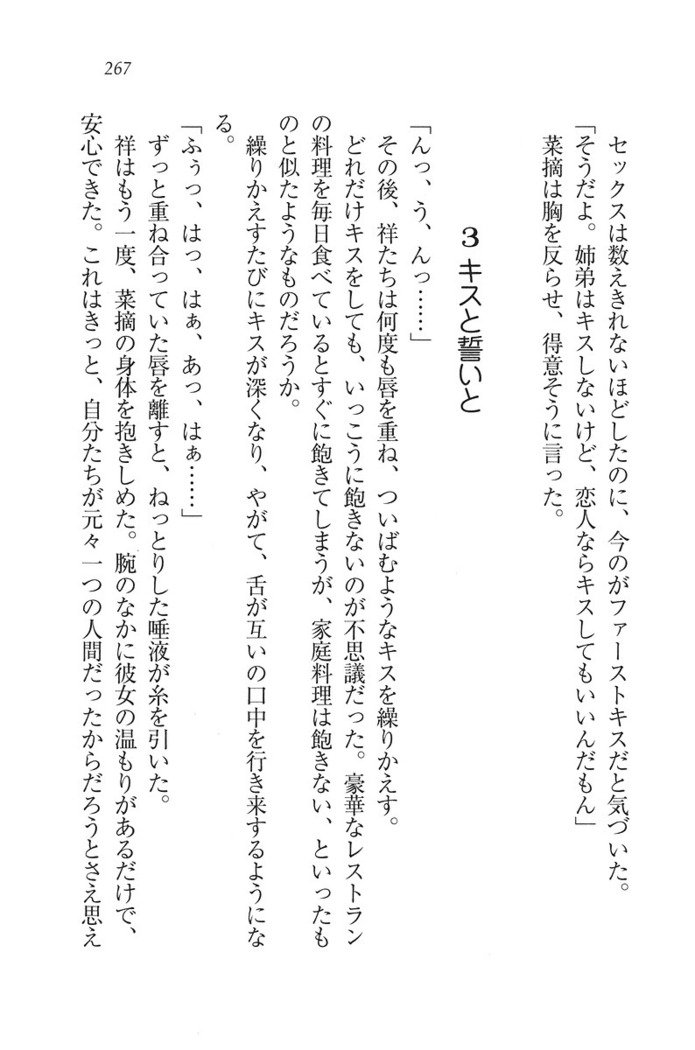 267
セックスは数えきれないほどしたのに、今のがファーストキスだと気づいた。
「そうだよ。姉弟はキスしないけど、恋人ならキスしてもいいんだもん」
菜摘は胸を反らせ、得意そうに言った。
3 キスと誓いと
「んっ、う、んっ……」
その後、祥たちは何度も唇を重ね、ついばむようなキスを繰りかえす。
どれだけキスをしても、いっこうに飽きないのが不思議だった。豪華なレストラン
の料理を毎日食べているとすぐに飽きてしまうが、家庭料理は飽きない、といったも
のと似たようなものだろうか。
繰りかえすたびにキスが深くなり、やがて、舌が互いの口中を行き来するようにな
る。
「ふぅっ、はっ、はぁ、あっ、はぁ……」
ずっと重ね合っていた唇を離すと、ねっとりした唾液が糸を引いた。
祥はもう一度、菜摘の身体を抱きしめた。腕のなかに彼女の温もりがあるだけで、
安心できた。これはきっと、自分たちが元々一つの人間だったからだろうとさえ思え